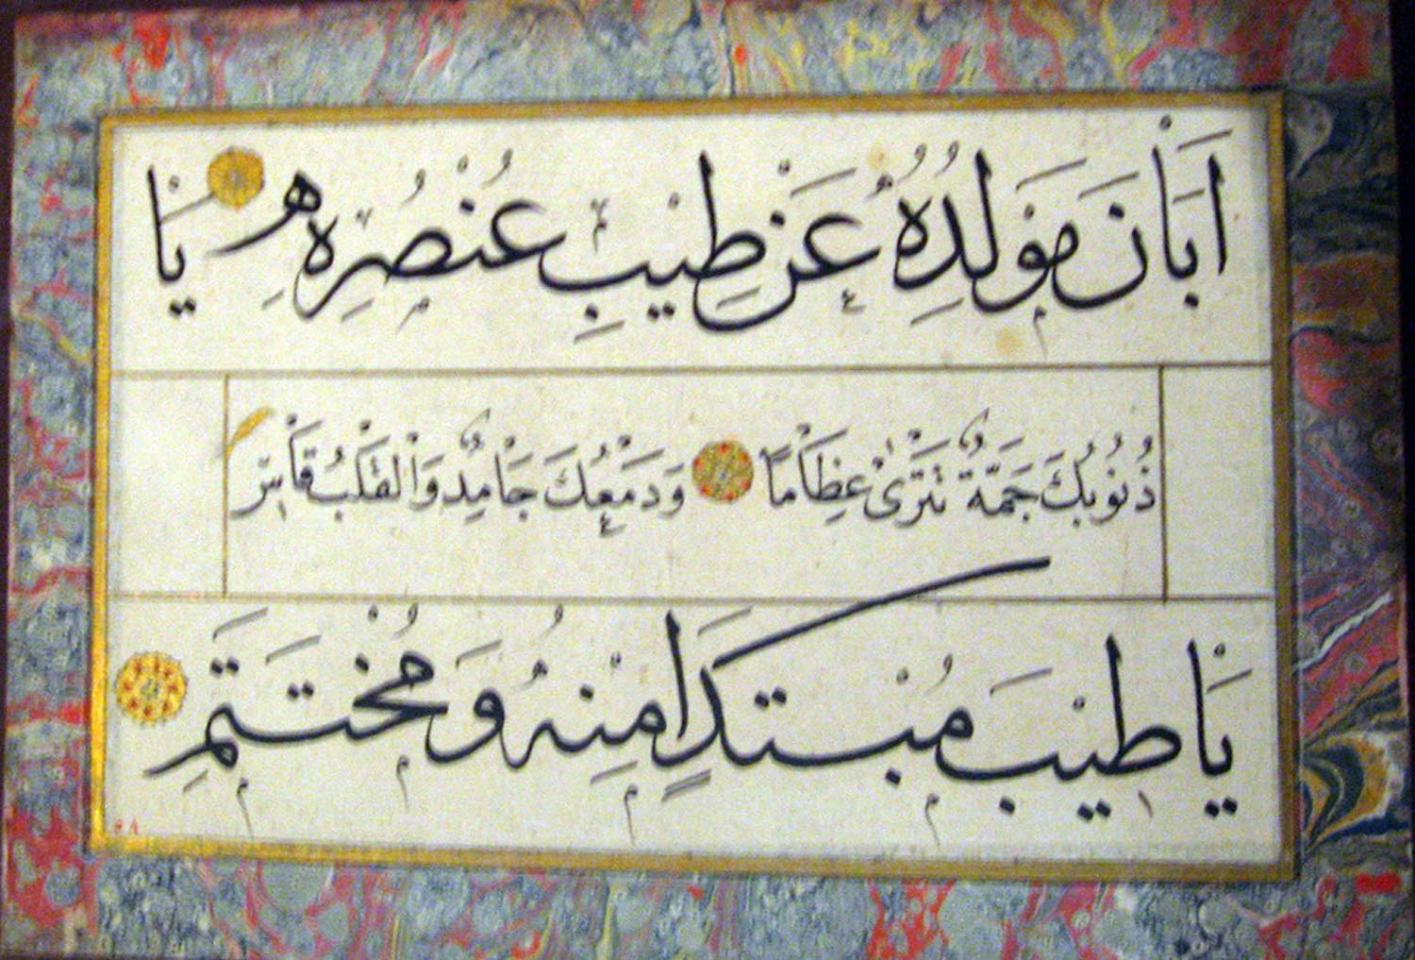 اَبَانَ مَوْلِدُهُ عَنْ طِيْبِ عُنْصُرِهِ يَا
ذُنُوبُكَ جَمَّةٌ تَتْرٰى عِظَامًا وَدَمْعُكَ جَامِدٌ وَالْقَلْبُ قَاسٍ
يَا طِيْبَ مُبْتَدَإٍ مِنْهُ وَمُخْتَتَمِ